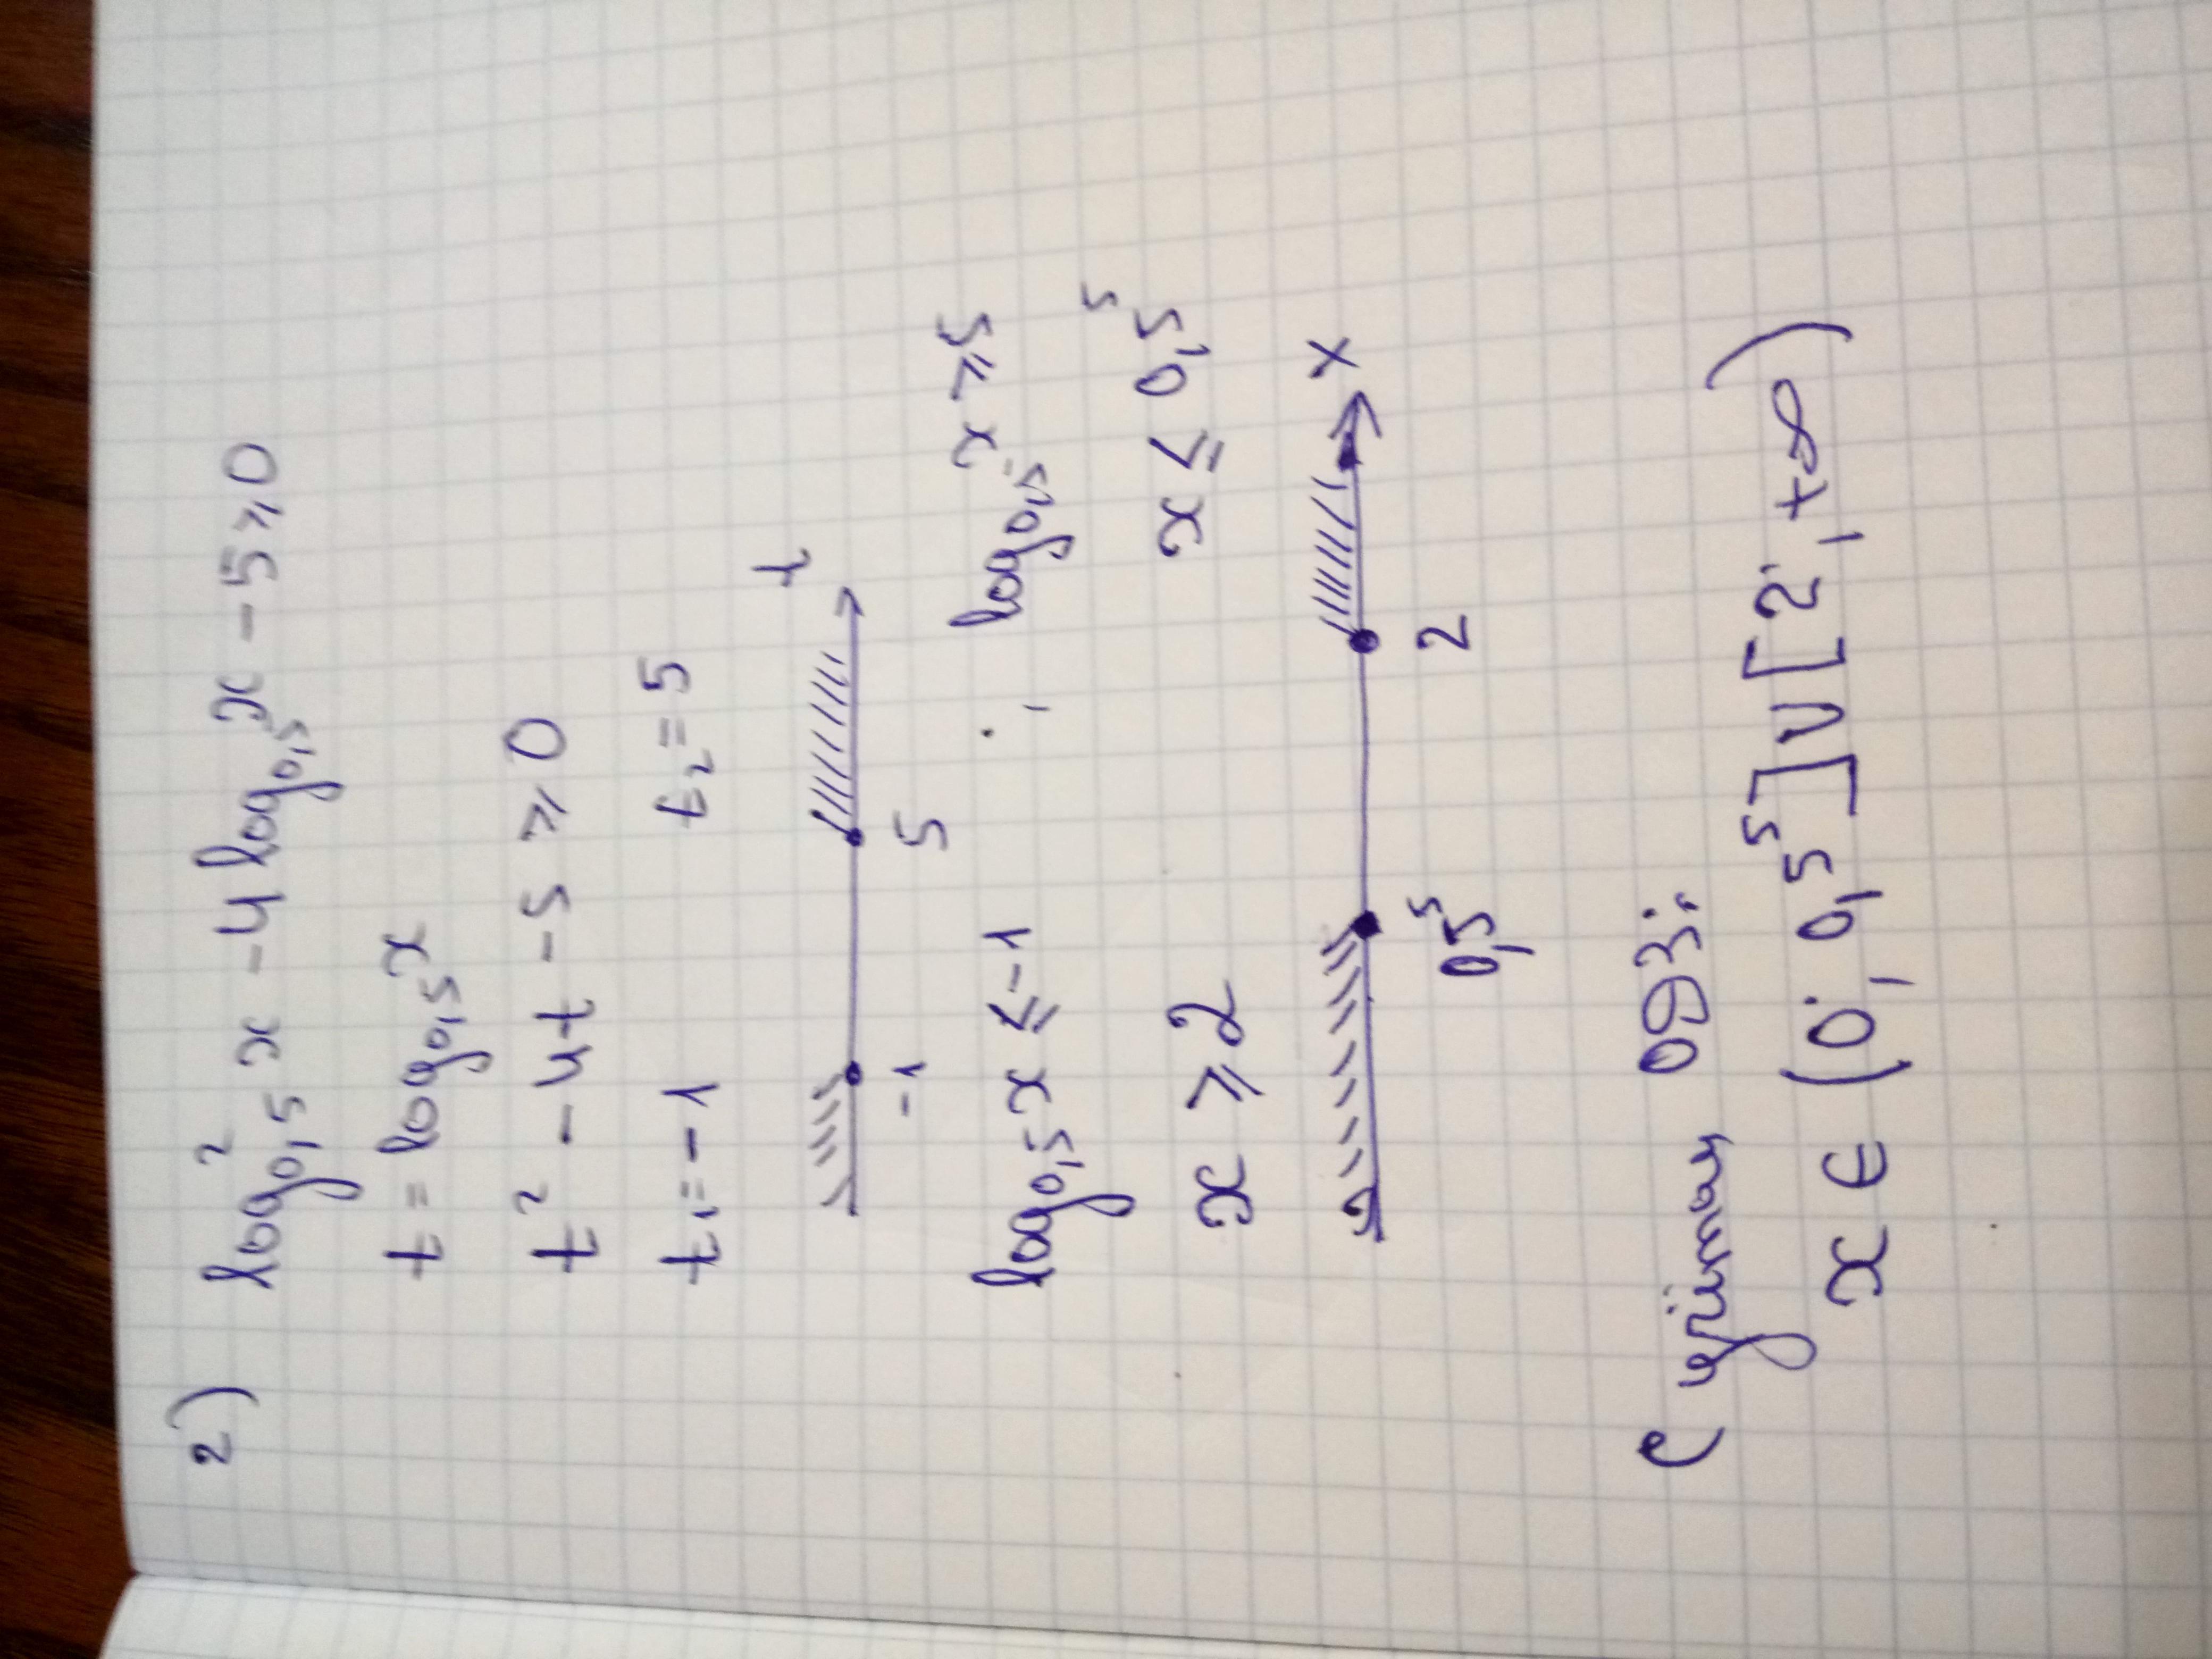 2) log²₀,₅ x - 4 log₀,₅ x - 5 ⩾ 0
t = log₀,₅ x
t² - 4t - 5 ⩾ 0
t₁ = -1 t₂ = 5
t
-1 5
log₀,₅ x ≤ -1 log₀,₅ x ⩾ 5
x ⩾ 2 x ≤ 0,5⁵
x
0,5⁵ 2
С урiтаų ОДЗ:
x ∈ (0; 0,5⁵] ∪ [2; +∞)